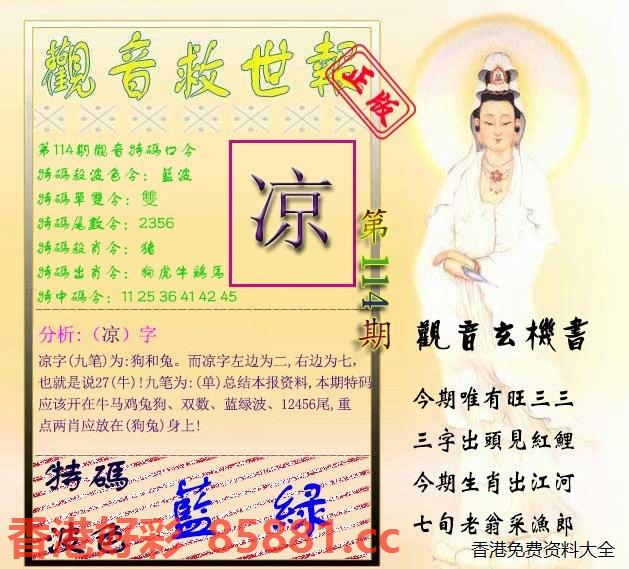 觀音救世報
正版
第114期觀音特碼口令
特碼殺波色令：藍波
特碼單雙令：雙
特碼尾數令：2356
特碼殺肖令：豬
特碼出肖令：狗虎牛鷄馬
特中碼令：11 25 36 41 42 45
凉
第114期
分析:（凉）字
凉字(九笔)为:狗和兔。而凉字左边为二,右边为七,
也就是说27(牛)!九笔为:(单)总结本报资料,本期特码
应该开在牛马鸡兔狗、双数、蓝绿波、12456尾,重
点两肖应放在(狗兔)身上!
特碼
波色
藍 綠
香港好彩 85881.cc
觀音玄機書
今期唯有旺三三
三字出頭見紅鯉
今期生肖出江河
七旬老翁采漁郎
香港免费资料大全